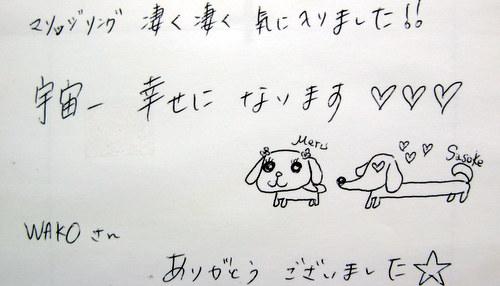 マリッジリング 凄く凄く 気に入りました!!
宇宙一 幸せに なります ♡♡♡
Meru
Sasuke
WAKO さん
ありがとう ございました☆